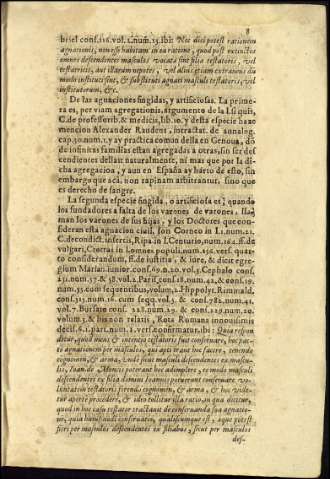 8
brief cons. 116. vol. 1. num. 15. ibi: Nec dici potest rationem
agnationis, non esse habitam in ea ratione, quod post extinctos
omnes descendentes masculos vocata sint filia testatoris, vel
testatricis, aut illarum nepotes, vel alius etiam extraneus du
modo instituti sint, & substituti agnati masculi testatoris, vel
instituentium, &c.
De las agnaciones fingidas, y artificiosas. La prime-
ra es, per viam agregationis, argumento de la L. si quis,
C. de professorib. & medicis, lib. 10. y desta especie haze
mencion Alexander Raudens, in tractat. de analog.
cap. 30. num. 1. y ay practica comun della en Genova, dõ
de infinitas familias estan agregadas à otras, sin ser des
cendientes dellas naturalmente, ni mas que por la di-
cha agregacion, y aun en España ay harto de esto, sin
embargo que acà, non rapinam arbitrantur, sino que
es derecho de sangre.
La segunda especie fingida, o artificiosa es, quando
los fundadores a falta de los varones de varones, llaman
los varones de sus hijas, y los Doctores que con-
sideran esta agnacion civil, son Corneo in L. 1. num. 21.
C. de condict. insertis, Ripa in L. Centurio, num. 164. ff. de
vulgari, Crotus in L. omnes populi, num. 156. vers. quar-
to considerandum, ff. de iustitia, & iure, & dicit egre-
gium Marian. iunior. cons. 69. n. 20. vol. 3. Cephalo cons.
231. num. 37. & 38. vol. 2. Paris, cons. 18. num. 42. & cons. 19.
num. 35. cum sequentibus, volum. 2. Hippolyt. Riminald.
cons. 315. num. 18. cum seqq. vol. 3. & cons. 782. num. 41.
vol. 7. Bursato cons. 228. num. 29. & cons. 329. num. 20.
volum. 3. & his non relatis, Rota Romana in novissimis
decis. 6. 1. part. num. 2. vers. confirmatur, ibi: Quia respon
detur, quod nunc ex intentio testatoris fuit conservare, hoc pac-
to agnationem per masculos, qui aperirant hoc facere, retento
cognomine, & armis, Unde sicut masculi descendentes ex mascu-
lis,
descendentes ex filia domini Ioannis poterunt conservare vo-
luntatem testatoris ferendo cognomen, & arma, & hoc vide-
tur aperte procedere, & ideo tollitur illa ratio, in qua dicitur,
quod in hoc casu testator tractavit de conservanda sua agnatio-
ne, quia huiusmodi conservatio, qualiscumque est, aeque potest
fieri per masculos descendentes in filiabus, sicut per masculos
des-